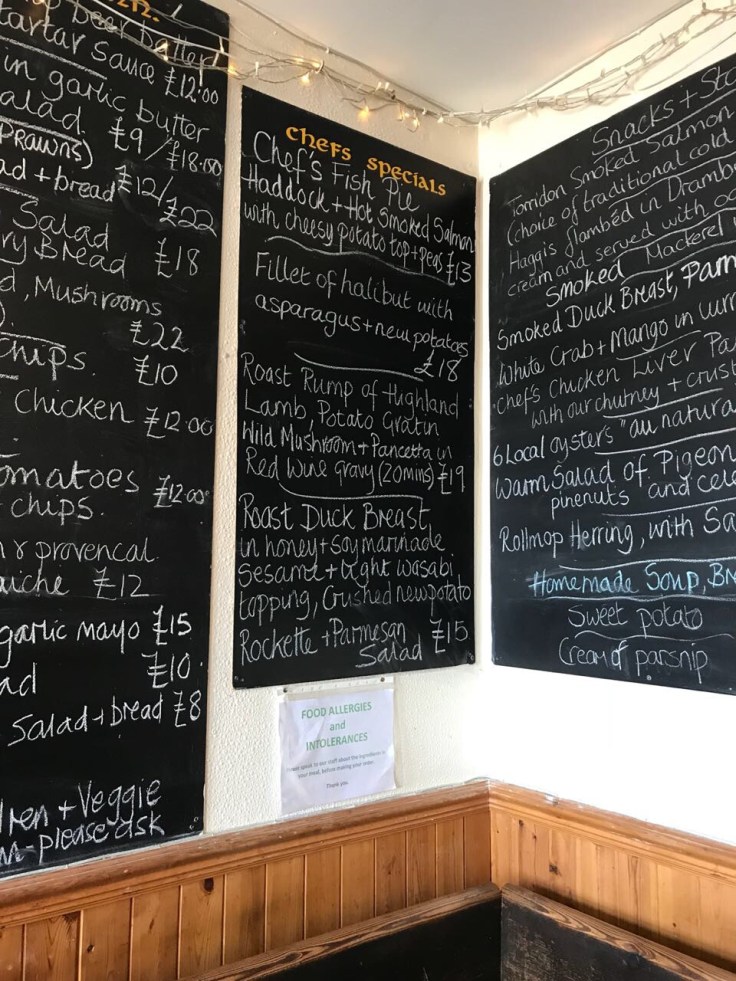 beer batter
tartar Sauce £12.00
in garlic butter
alad. £9/£18.00
PRAWNS)
ad + bread £12/£22
Salad
ry Bread £18
d, Mushrooms
£22
Chips. £10
Chicken £12.00
omatoes £12.00
chips.
provencal
£12
garlic mayo £15
ad £10.
Salad + bread £8
+ Veggie
- please ask
Chefs Specials
Chef's Fish Pie
Haddock + Hot Smoked Salmon
with cheesy potato top + peas £13
Fillet of halibut with
asparagus + new potatoes
£18
Roast Rump of Highland
Lamb, Potato Gratin
Wild Mushroom + Pancetta in
Red Wine gravy (20mins) £19
Roast Duck Breast
in honey + soy marinade
Sesame + light wasabi
topping, Crushed new potato
Rockette + Parmesan £15
Salad
FOOD ALLERGIES
and
INTOLERANCES
Please speak to our staff about the ingredients in
your meal, before making your order.
Thank you.
Snacks + Sta
Torridon Smoked Salmon
(Choice of traditional cold
Haggis flambéd in Drambu
cream and served with oa
Smoked Mackerel
Smoked Duck Breast, Parm
White Crab + Mango in
Chef's Chicken Liver Pa
with our chutney + crust
6 Local oysters "au natura
Warm Salad of Pigeon
pinenuts and cele
Rollmop Herring, with Sa
Homemade Soup, Br
Sweet potato
Cream of parsnip